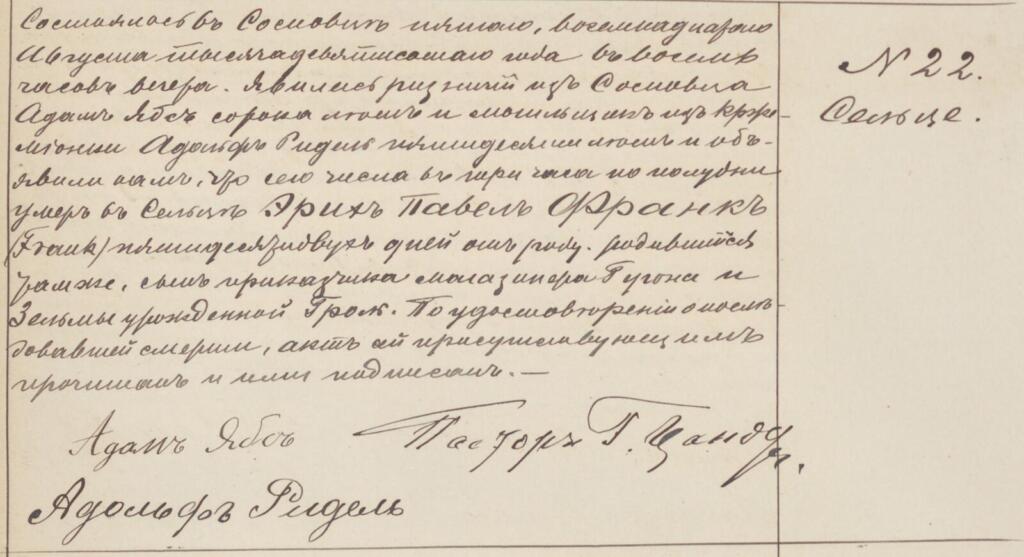 Состоялось въ Сосновицѣ пятаго, восемнадцатаго
Августа тысячадевятисотаго года въ восемь
часовъ вечера. Явились ризничій изъ Сосновца
Адамъ Ябсъ сорока лѣтъ и могильщикъ изъ Крже-
мíонки Адольфъ Ридель пятидесяти лѣтъ и объ-
явили намъ, что сего числа въ три часа по полудни
умеръ въ Сельцѣ Эрихъ Павелъ Франкъ
(Frank) пятидесятидвухъ дней отъ роду. родившійся
тамже, сынъ приказчика магазинера Гугона и
Зельмы урожденной Грож. По удостовѣреніи о послѣ-
довавшей смерти, актъ сей присутствующимъ
прочитанъ и ими подписанъ. —
Адамъ Ябсъ
Пасторъ Г. Цандеръ.
Адольфъ Ридель
N 22.
Сельце.